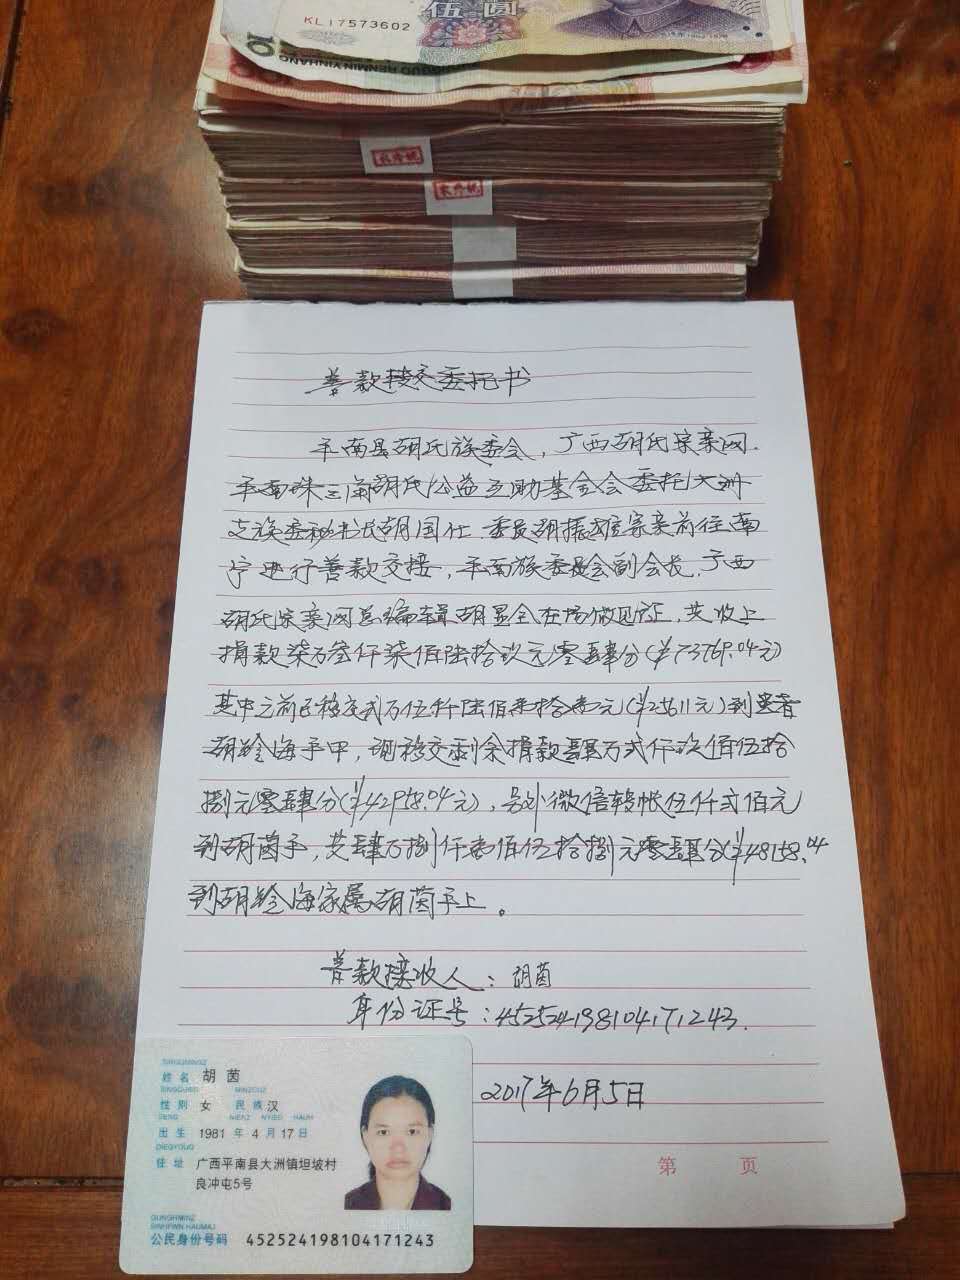 KL17573602
伍圆
善款接交委托书
平南县胡氏族委会，广西胡氏宗亲网.
平南珠三角胡氏公益互助基金会委托大洲
支族委秘书长胡国仕.委员胡振雄宗亲前往南
宁进行善款交接，平南族委员会副会长，广西
胡氏宗亲网总编辑胡显全在场做见证，共收上
捐款柒万叁仟柒佰陆拾玖元零肆分(¥73769.04元)
其中之前已移交弍万伍仟陆佰壹拾壹元(¥25611元)到患者
胡 海手中，现移交剩余捐款肆万弍仟玖佰伍拾
捌元零肆分(¥42958.04元)，另外微信转帐伍仟弍佰元
到胡茵手，共肆万捌仟壹佰伍拾捌元零肆分(¥48158.04
到胡 海家属胡茵手上。
善款接收人：胡茵
身份证号：452524198104171243.
2017年6月5日
第 页
SINGQMINGZ
姓名 胡茵
SINGQBIED MINZCUZ
性别 女 民族 汉
SENG NIENZ NYIED HAUH
出生 1981 年 4 月 17 日
DIEGYOUQ
住址 广西平南县大洲镇坦坡村
良冲屯5号
GUNGHMINZ
SINHFWN HAUMAJ
公民身份号码 452524198104171243